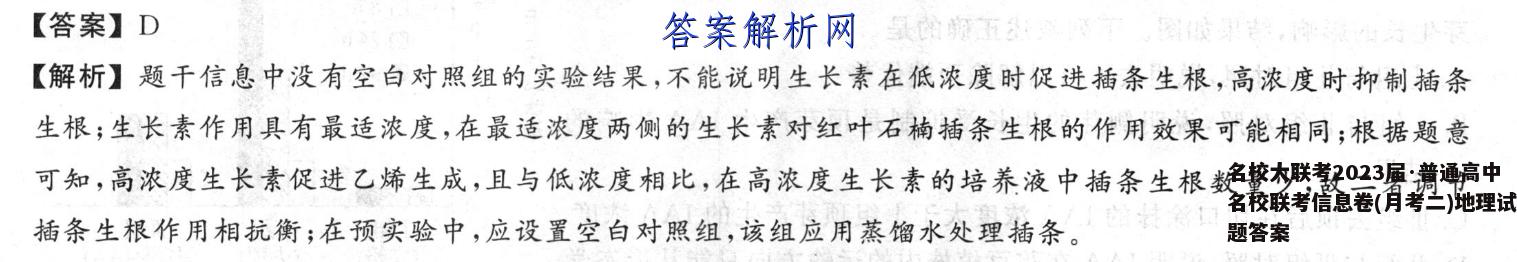 【答案】D
答案解析网
【解析】题干信息中没有空白对照组的实验结果,不能说明生长素在低浓度时促进插条生根,高浓度时抑制插条
生根;生长素作用具有最适浓度,在最适浓度两侧的生长素对红叶石楠插条生根的作用效果可能相同;根据题意
可知,高浓度生长素促进乙烯生成,且与低浓度相比,在高浓度生长素的培养液中插条生根数量少,故二者调节
插条生根作用相抗衡;在预实验中,应设置空白对照组,该组应用蒸馏水处理插条。
名校大联考2023届·普通高中
名校联考信息卷(月考二)地理试
题答案